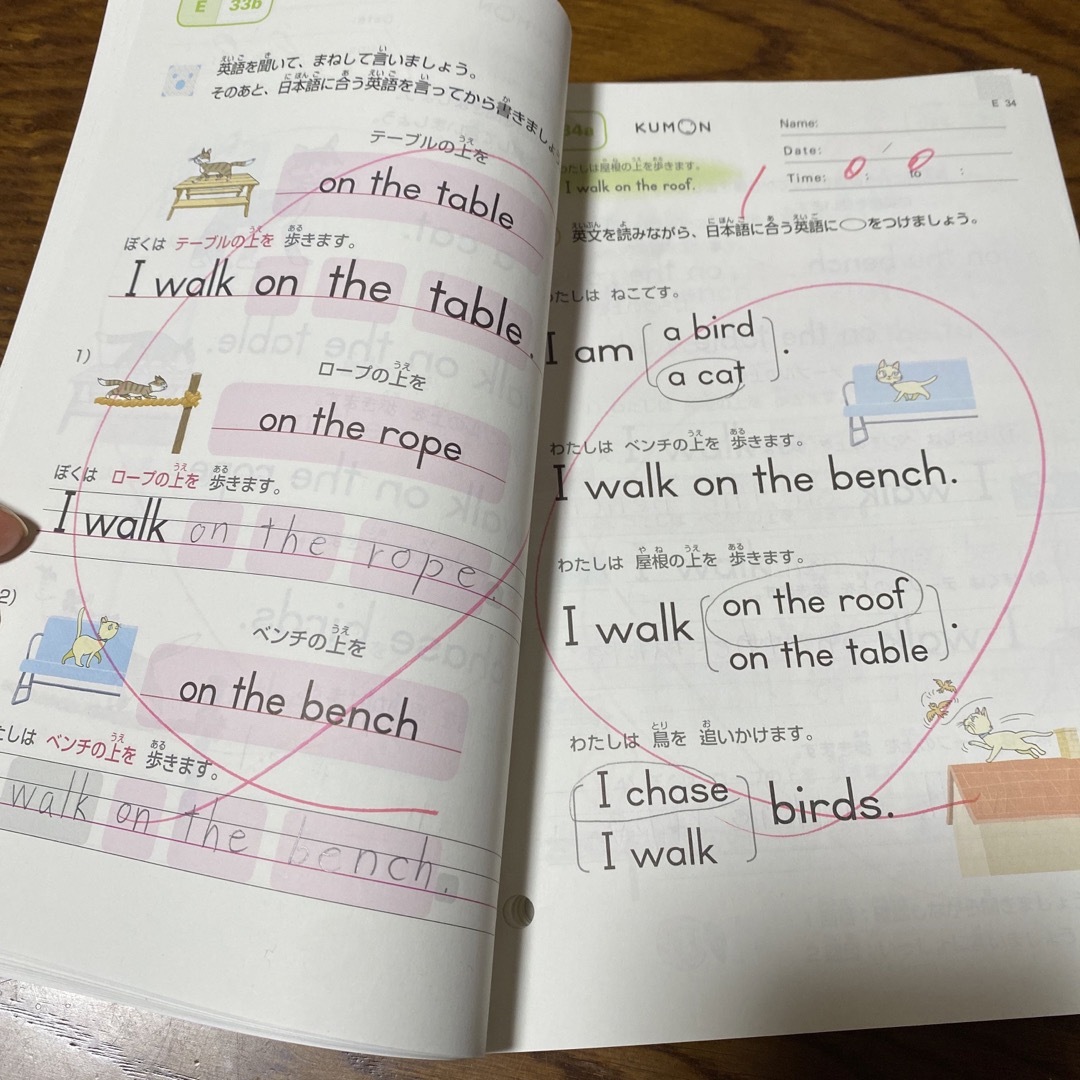 E 33b
英語を聞いて、まねして言いましょう。
そのあと、日本語に合う英語を言ってから書きましょ
テーブルの上を
on the table
ぼくは テーブルの上を 歩きます。
I walk on the table.
1)
ロープの上を
on the rope
ぼくは ロープの上を 歩きます。
I walk on the rope.
2)
ベンチの上を
on the bench
たしは ベンチの上を 歩きます。
walk on the bench.
E 34
34a
KUMON
Name:
Date: /
Time: : to :
わたしは屋根の上を歩きます。
I walk on the roof.
英文を読みながら、日本語に合う英語に○をつけましょう。
わたしは ねこです。
I am
a bird
a cat
.
わたしは ベンチの上を 歩きます。
I walk on the bench.
わたしは 屋根の上を 歩きます。
I walk
on the roof
on the table
.
わたしは 鳥を 追いかけます。
I chase
I walk
birds.